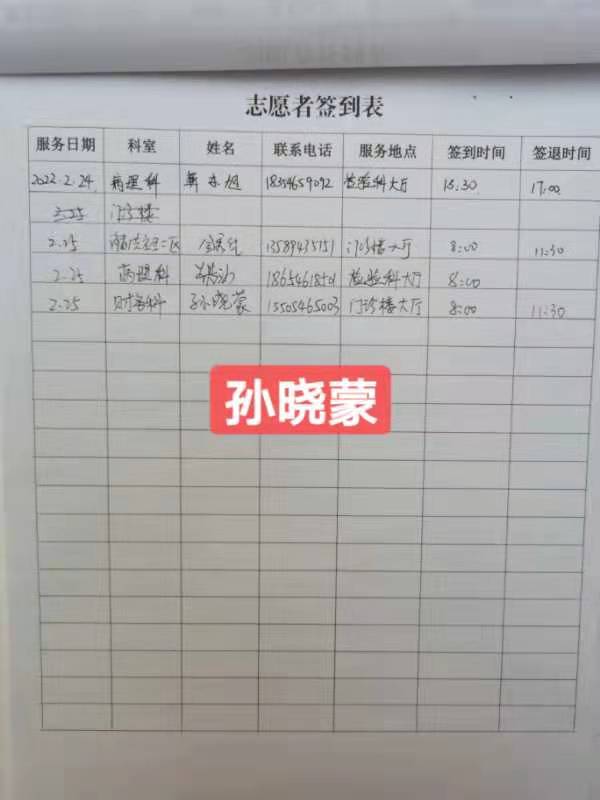 志愿者签到表
服务日期 科室 姓名 联系电话 服务地点 签到时间 签退时间
2022.2.24 病理科 18354659092 检验科大厅 13:30 17:00
2.25 门诊楼
2.25 13589435151 门诊楼大厅 8:00 11:30
2.25 病理科 18654618501 检验科大厅 8:00
2.25 财务科 孙晓蒙 15505465003 门诊楼大厅 8:00 11:30
孙晓蒙